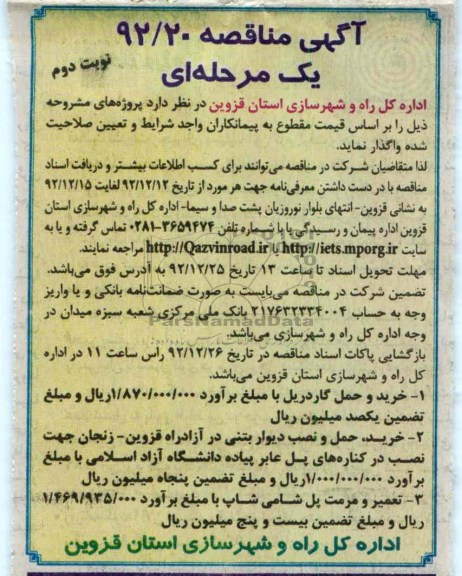 آگهی مناقصه ۹۲/۲۰
یک مرحله‌ای
نوبت دوم
اداره کل راه و شهرسازی استان قزوین در نظر دارد پروژه‌های مشروحه
ذیل را بر اساس قیمت مقطوع به پیمانکاران واجد شرایط و تعیین صلاحیت
شده واگذار نماید.
لذا متقاضیان شرکت در مناقصه می‌توانند برای کسب اطلاعات بیشتر و دریافت اسناد
مناقصه با در دست داشتن معرفی‌نامه جهت هر مورد از تاریخ ۹۲/۱۲/۱۲ لغایت ۹۲/۱۲/۱۵
به نشانی قزوین- انتهای بلوار نوروزیان پشت صدا و سیما- اداره کل راه و شهرسازی استان
قزوین اداره پیمان و رسیدگی یا با شماره تلفن ۳۶۵۹۴۷۴-۰۲۸۱ تماس گرفته و یا به
سایت http://iets.mporg.ir یا http://Qazvinroad.ir مراجعه نمایند.
مهلت تحویل اسناد تا ساعت ۱۳ تاریخ ۹۲/۱۲/۲۵ به آدرس فوق می‌باشد.
تضمین شرکت در مناقصه می‌بایست به صورت ضمانت‌نامه بانکی و یا واریز
وجه به حساب ۲۱۷۶۳۲۳۳۴۰۰۴ بانک ملی مرکزی شعبه سبزه میدان در
وجه اداره کل راه و شهرسازی می‌باشد.
بازگشایی پاکات اسناد مناقصه در تاریخ ۹۲/۱۲/۲۶ راس ساعت ۱۱ در اداره
کل راه و شهرسازی استان قزوین می‌باشد.
۱- خرید و حمل گاردریل با مبلغ برآورد ۱/۸۷۰/۰۰۰/۰۰۰ریال و مبلغ
تضمین یکصد میلیون ریال
۲- خرید، حمل و نصب دیوار بتنی در آزادراه قزوین- زنجان جهت
نصب در کناره‌های پل عابر پیاده دانشگاه آزاد اسلامی با مبلغ
برآورد ۱/۰۰۰/۰۰۰/۰۰۰ریال و مبلغ تضمین پنجاه میلیون ریال
۳- تعمیر و مرمت پل شامی شاپ با مبلغ برآورد ۱/۴۶۹/۹۳۵/۰۰۰
ریال و مبلغ تضمین بیست و پنج میلیون ریال
اداره کل راه و شهرسازی استان قزوین
ParsNamadData